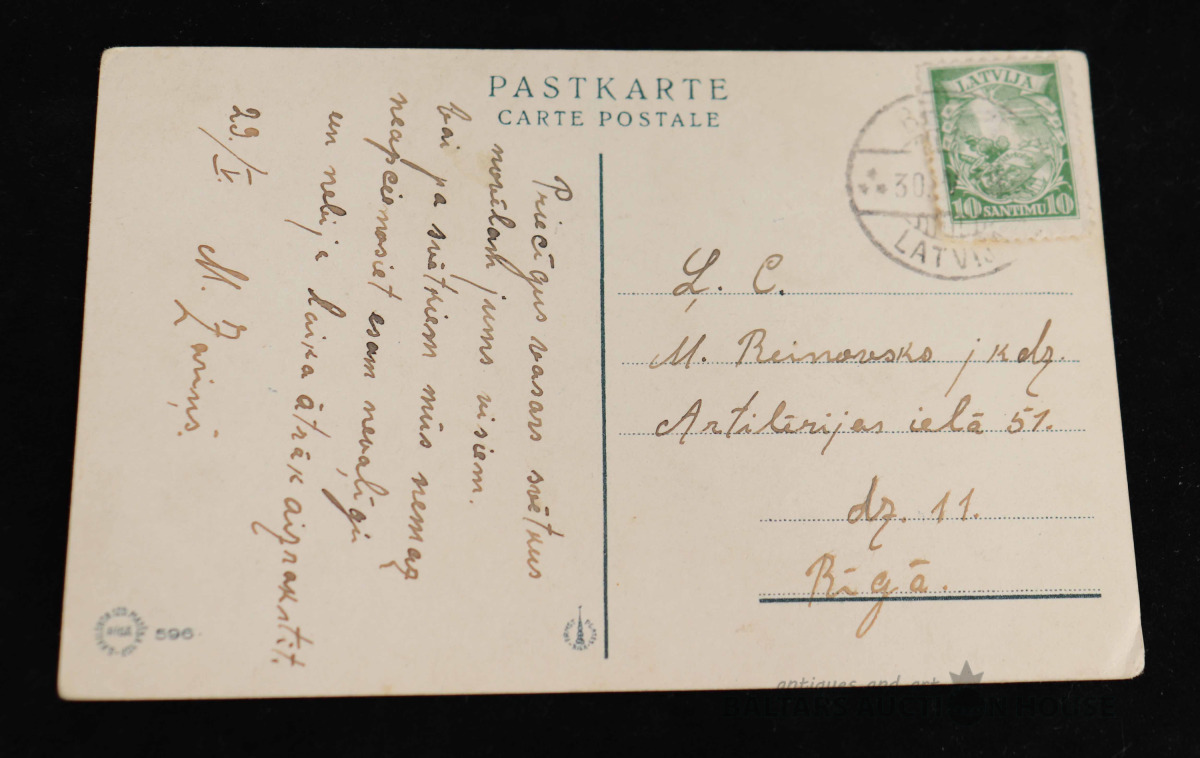 PASTKARTE
CARTE POSTALE
LATVIJA
10 SANTIMU 10
30
LATVIJ
Priecīgus vasars svētkus
novēlam jums visiem.
Vai pa svētkiem mūs nemaz
neapciemosiet esam nevaļīgi
un nebij laika ātrāk aizrakstīt.
29./V.
M. Zariņš.
Ļ. C.
M. Reinovsko jkdz.
Artilērijas ielā 51.
dz. 11.
Rīgā.
596
antiques and art
BALTARS AUCTION HOUSE